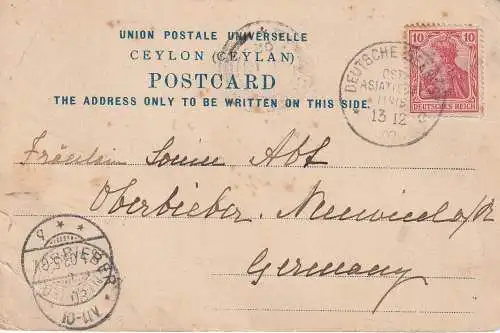 UNION POSTALE UNIVERSELLE
CEYLON (CEYLAN)
POSTCARD
THE ADDRESS ONLY TO BE WRITTEN ON THIS SIDE.
10 10
DEUTSCHES REICH
DEUTSCHE
OST
13 12
Fräulein Louise Abt
Oberbieber Neuwied a/R
Germany
10-11 N